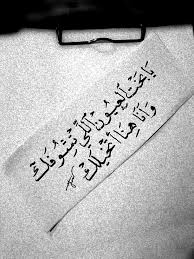 يَا بَخت لعيُون اللّي تشُوفكْ
وَ انَا هِنَا أتخيلكْ